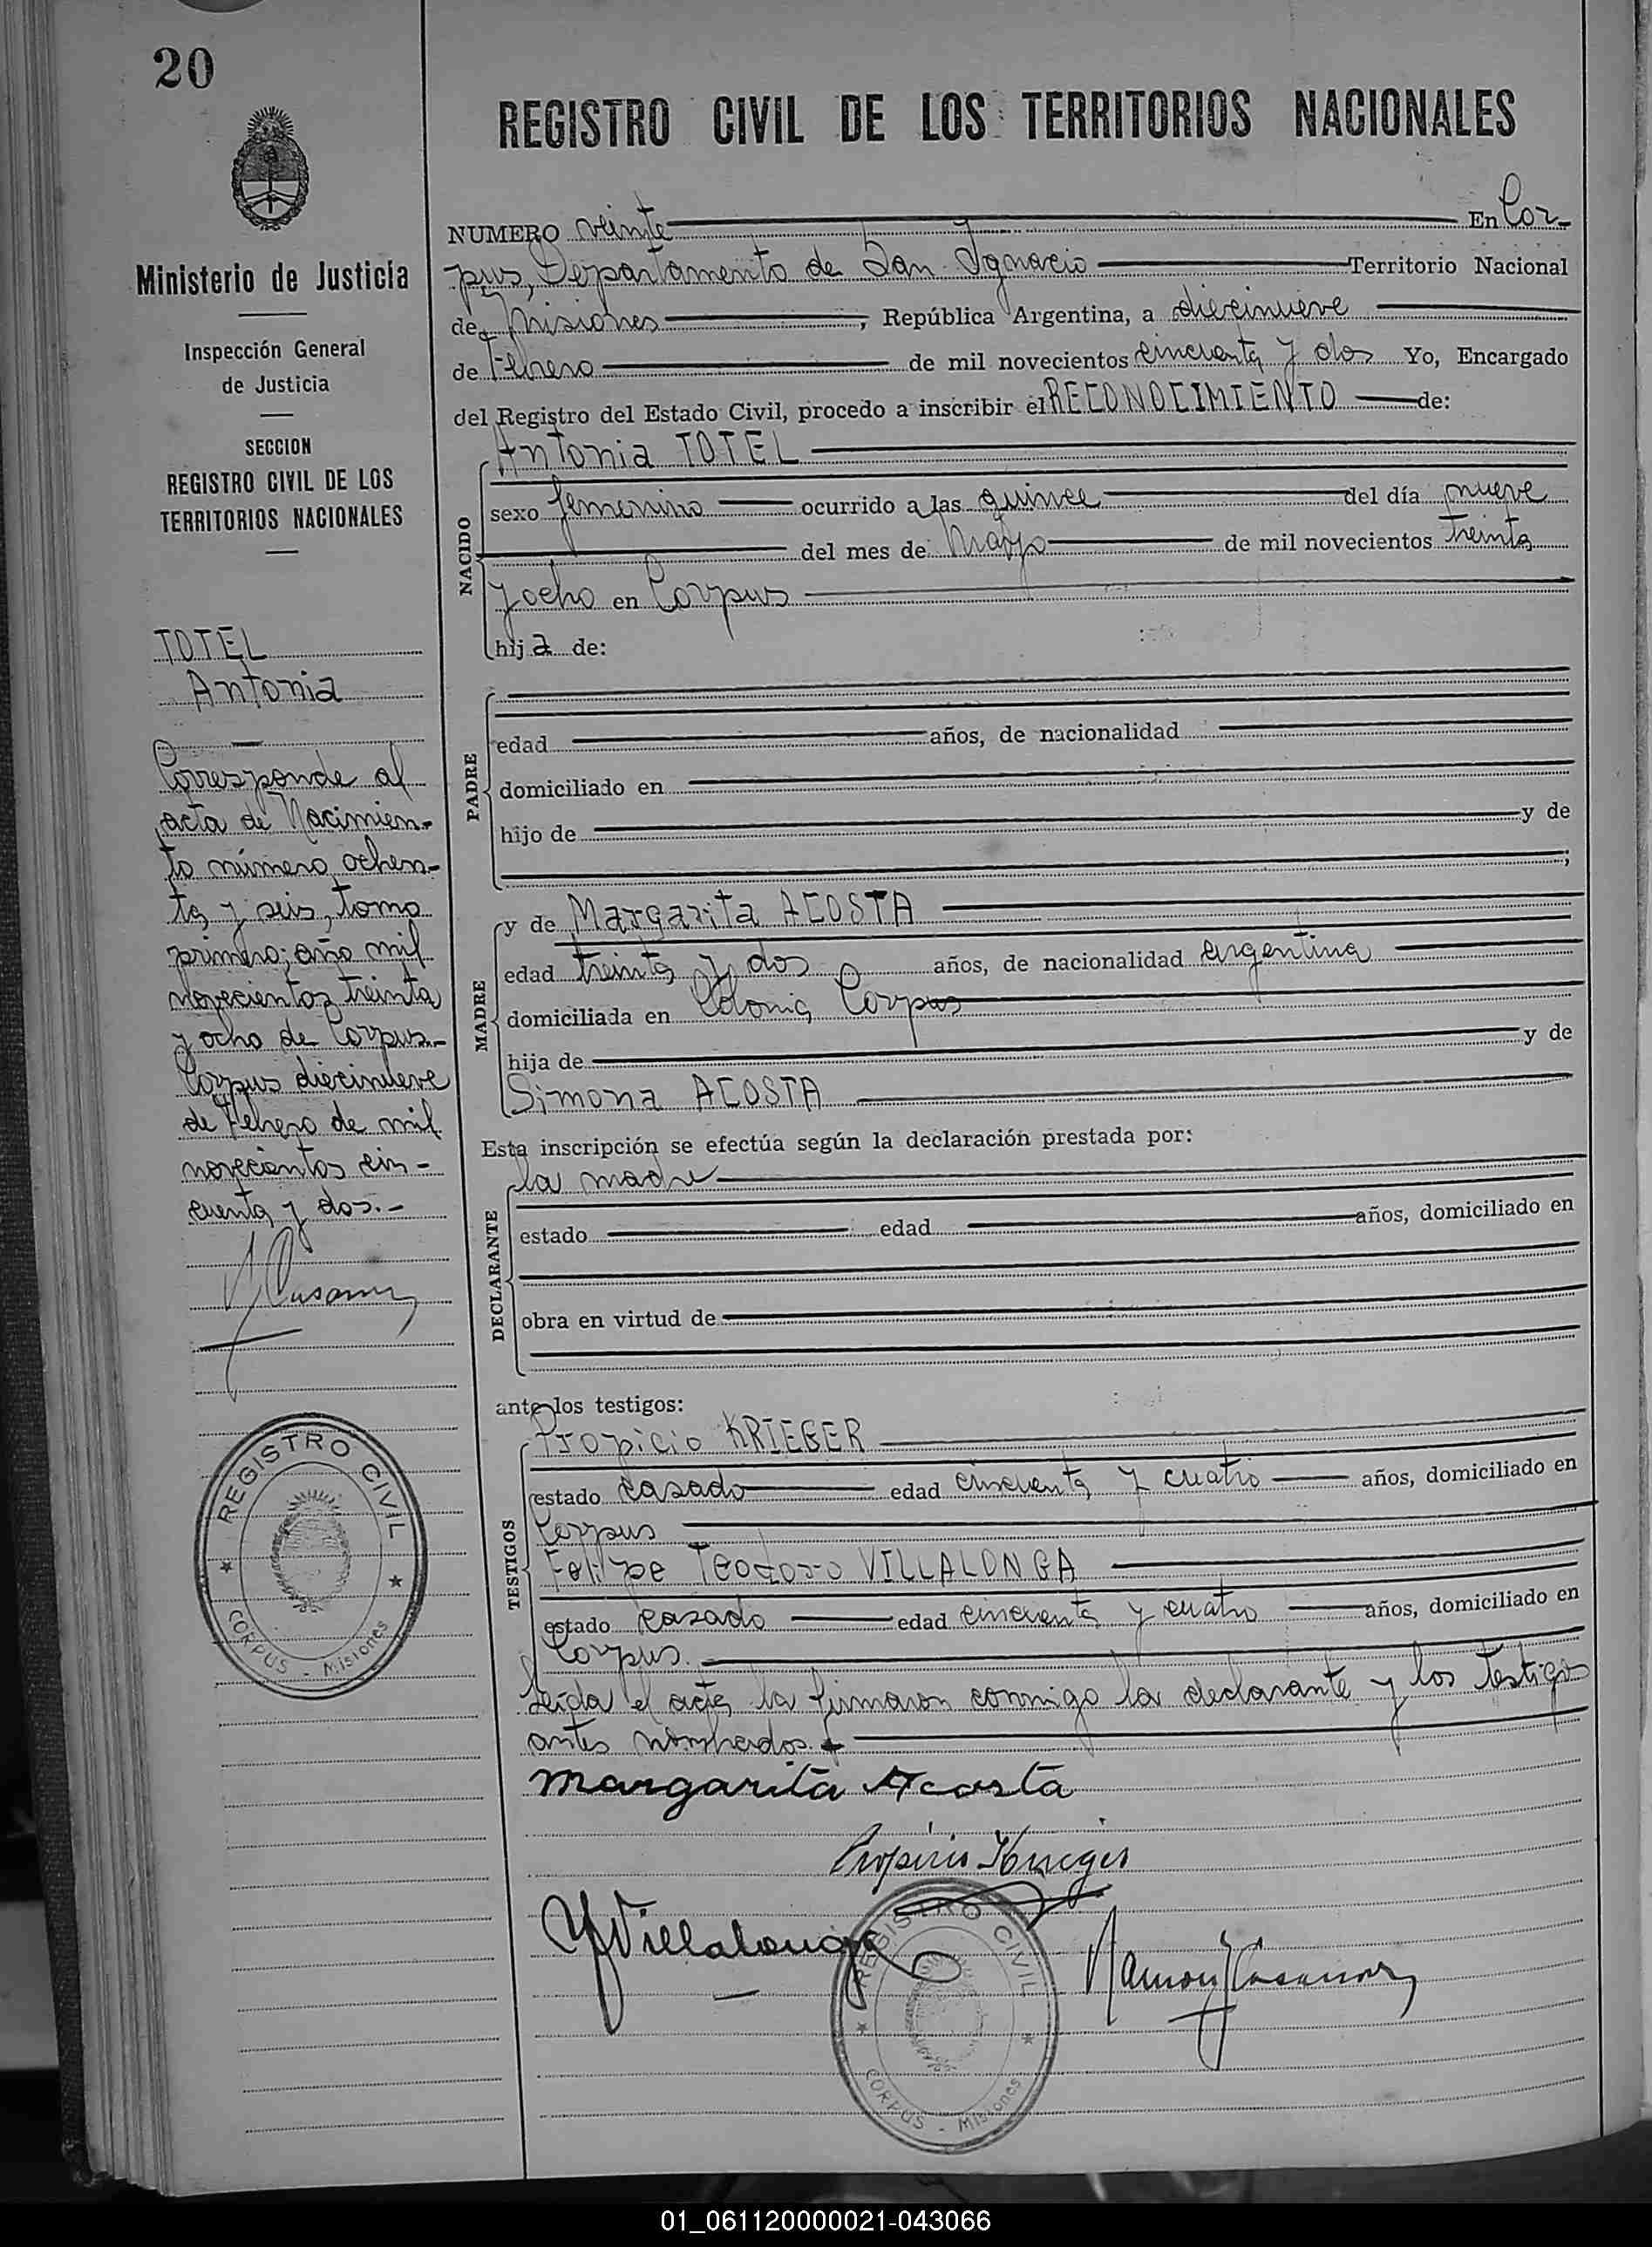 20
Ministerio de Justicia
Inspección General
de Justicia
SECCION
REGISTRO CIVIL DE LOS
TERRITORIOS NACIONALES
TOTEL
Antonia
Corresponde al
acta de Nacimien-
to número ochen-
ta y seis, tomo
primero, año mil
novecientos treinta
y ocho de Corpus.-
Corpus diecinueve
de Febrero de mil
novecientos cin-
cuenta y dos.-
REGISTRO CIVIL
CORPUS - Misiones
REGISTRO CIVIL DE LOS TERRITORIOS NACIONALES
NUMERO veinte En Cor-
pus, Departamento de San Ignacio Territorio Nacional
de Misiones, República Argentina, a diecinueve
de Febrero de mil novecientos cincuenta y dos Yo, Encargado
del Registro del Estado Civil, procedo a inscribir el RECONOCIMIENTO de:
NACIDO
Antonia TOTEL
sexo femenino ocurrido a las quince del día nueve
del mes de Mayo de mil novecientos treinta
y ocho en Corpus
hija de:
PADRE
edad años, de nacionalidad
domiciliado en
hijo de y de
;
MADRE
y de Margarita ACOSTA
edad treinta y dos años, de nacionalidad argentina
domiciliada en Colonia Corpus
hija de y de
Simona ACOSTA
Esta inscripción se efectúa según la declaración prestada por:
DECLARANTE
la madre
estado edad años, domiciliado en
obra en virtud de
ante los testigos:
TESTIGOS
Propicio KRIEGER
estado casado edad cincuenta y cuatro años, domiciliado en
Corpus
Felipe Teodoro VILLALONGA
estado casado edad cincuenta y cuatro años, domiciliado en
Corpus.
Leída el acta, la firmaron conmigo la declarante y los testigos
antes nombrados.
Margarita Acosta
Propicio Krieger
Villalonga
REGISTRO CIVIL
CORPUS - Misiones
01_061120000021-043066